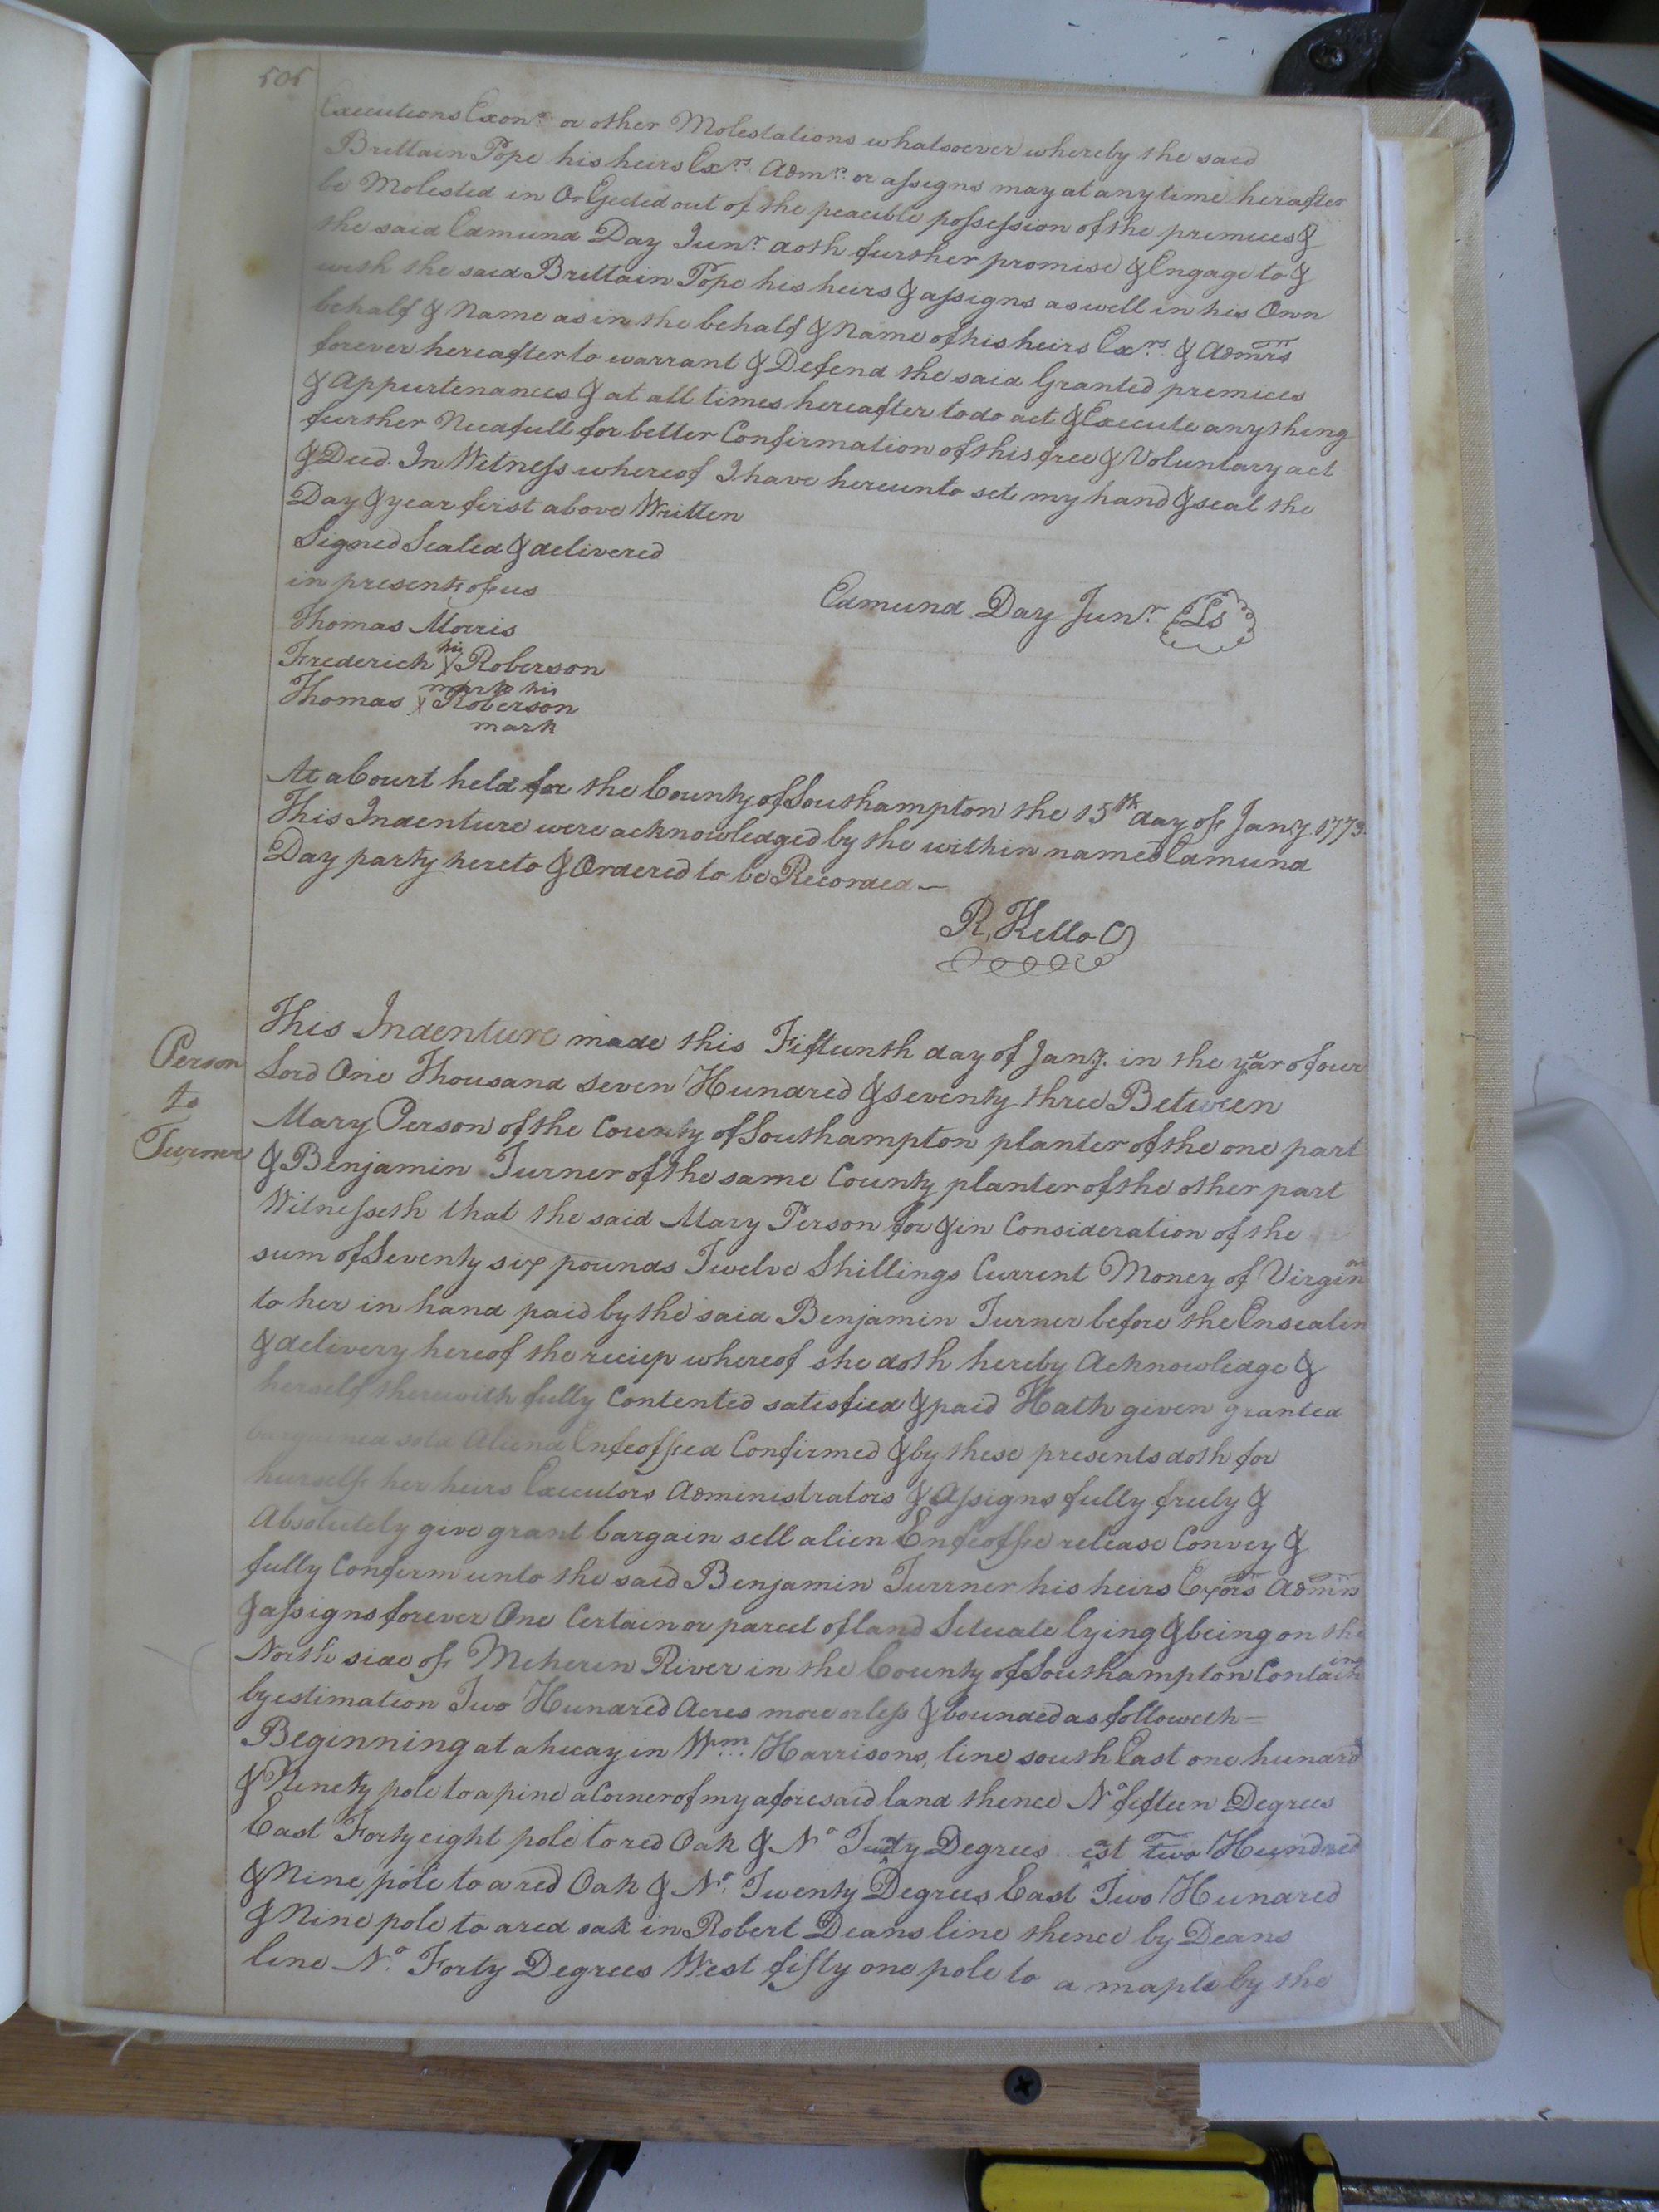 505
Executions Exons. or other Molestations whatsoever whereby the said
Brittain Pope his heirs Exrs. Admrs. or assigns may at any time hereafter
be Molested in Or Ejected out of the peacible possession of the premices &
the said Edmund Day Junr. doth further promise & Engage to &
with the said Brittain Pope his heirs & assigns as well in his Own
behalf & Name as in the behalf & Name of his heirs Exrs. & Admrs
forever hereafter to warrant & Defend the said Granted premices
& Appurtenances & at all times hereafter to do act & Execute any thing
further Needfull for better Confirmation of this free & Voluntary act
& Deed. In Witness whereof I have hereunto set my hand & seal the
Day & year first above Written
Signed Sealed & delivered
in present of us
Edmund Day Junr. Ls
Thomas Morris
Frederich his X Roberson
mark his
Thomas X Roberson
mark
At a Court held for the County of Southampton the 15th day of Jany. 1773
This Indenture were acknowledged by the within named Edmund
Day party hereto & Ordered to be Recorded —
R. Kello C
Person
to
Turner
This Indenture made this Fifteenth day of Jany. in the year of our
Lord One Thousand seven Hundred & seventy three Between
Mary Person of the County of Southampton planter of the one part
& Benjamin Turner of the same County planter of the other part
Witnesseth that the said Mary Person for & in Consideration of the
sum of Seventy six pounds Twelve Shillings Current Money of Virgin
to her in hand paid by the said Benjamin Turner before the Ensealin
& delivery hereof the reciep whereof she doth hereby Acknowledge &
herself therewith fully Contented satisfied & paid Hath given granted
bargained sold Aliend Enfeoffed Confirmed & by these presents doth for
herself her heirs Executors Administrators & Assigns fully freely &
Absolutely give grant bargain sell alien Enfeoffe release Convey &
fully Confirm unto the said Benjamin Turrner his heirs Exors Admrs
& assigns forever One Certain or parcel of land Setuate lying & being on the
North side of Meherin River in the County of Southampton Containing
by estimation Two Hundred Acres more or less & bounded as followeth =
Beginning at a hicay in Wm. Harrisons, line south East one hundrd
& Ninety pole to a pine a Corner of my aforesaid land thence No fifteen Degrees
East Forty eight pole to red Oak & No Degrees est two Hundred
& Nine pole to a red Oak & No. Twenty Degrees East Two Hundred
& Nine pole to a red oak in Robert Deans line thence by Deans
line No. Forty Degrees West fifty one pole to a maple by the